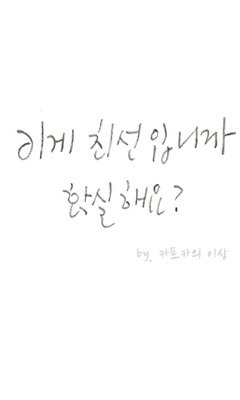 이게 최선입니까
확실해요?
by. 카프카의 이상